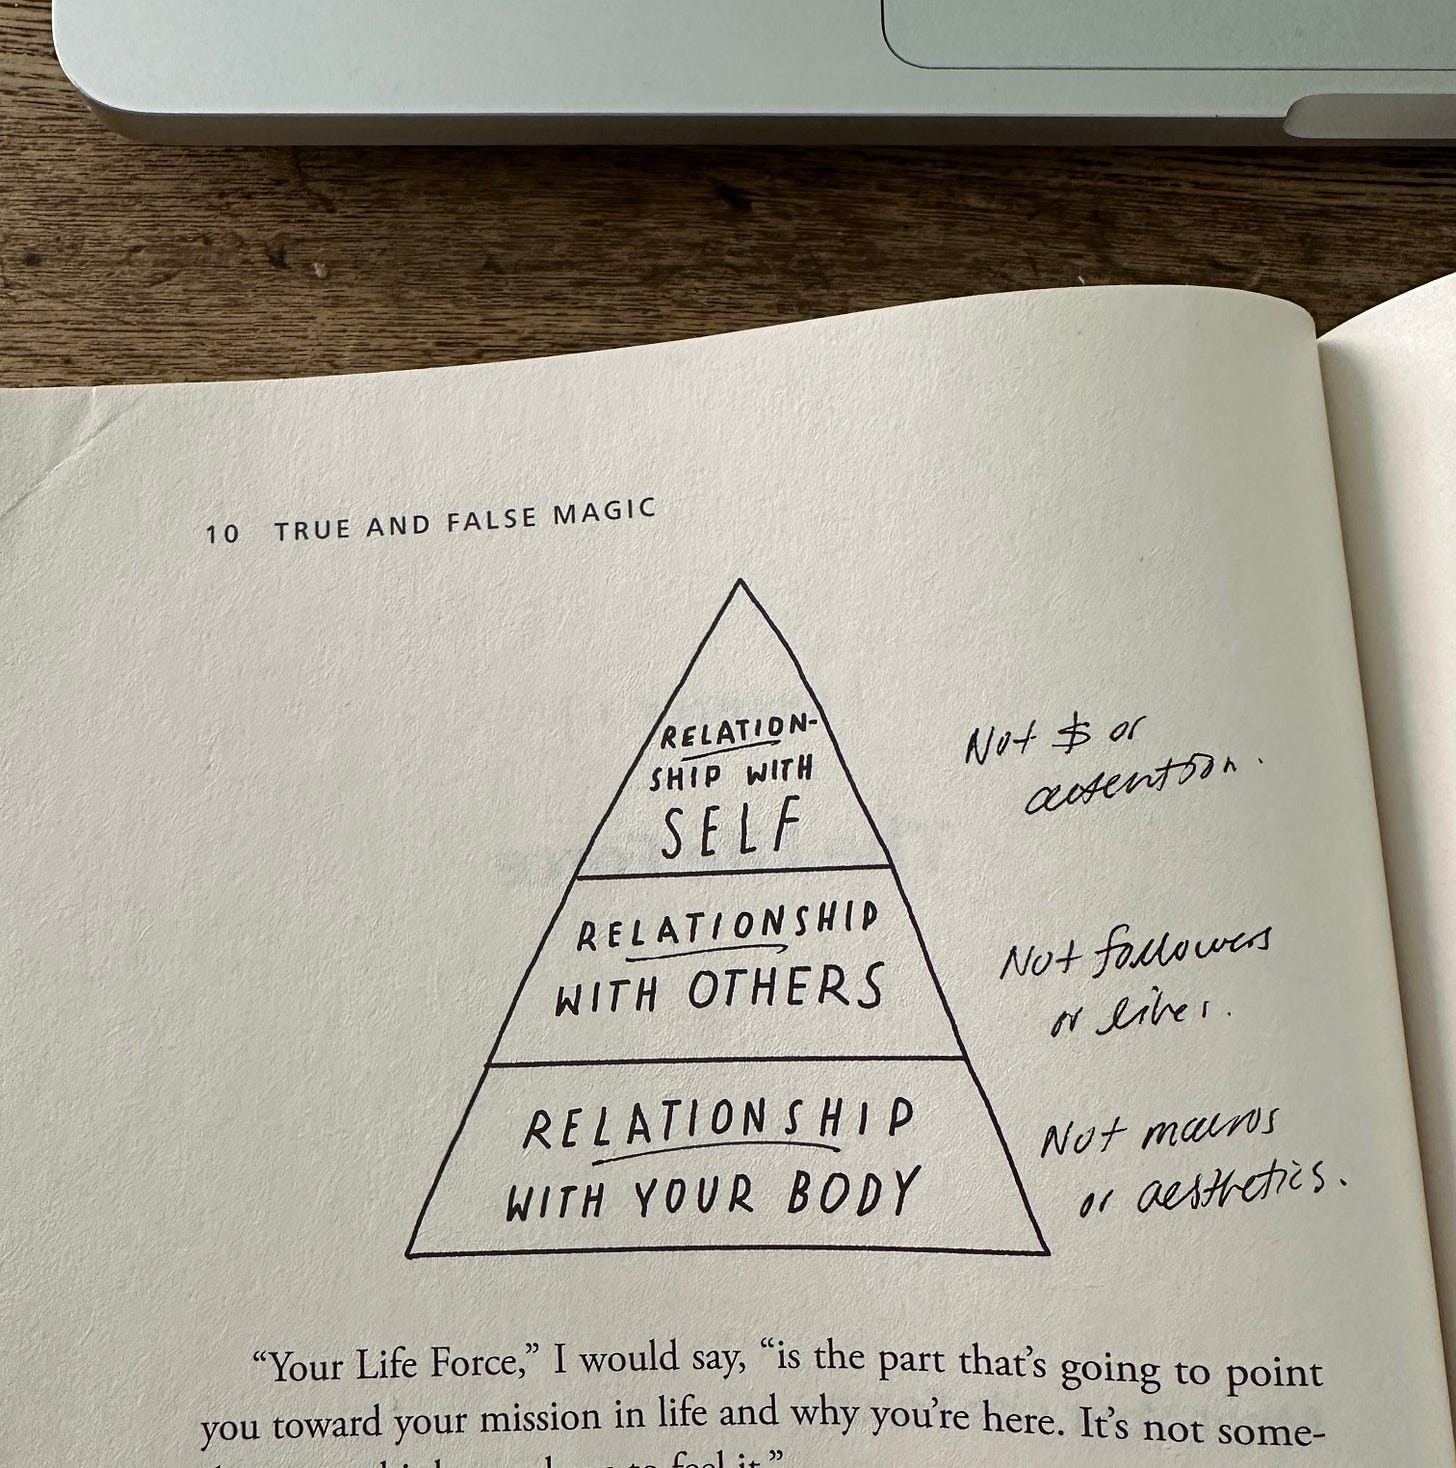 10 TRUE AND FALSE MAGIC
RELATION-
SHIP WITH
SELF
Not $ or
attention.
RELATIONSHIP
WITH OTHERS
Not followers
or likes.
RELATIONSHIP
WITH YOUR BODY
Not macros
or aesthetics.
“Your Life Force,” I would say, “is the part that’s going to point
you toward your mission in life and why you’re here. It’s not some-
to feel it.”